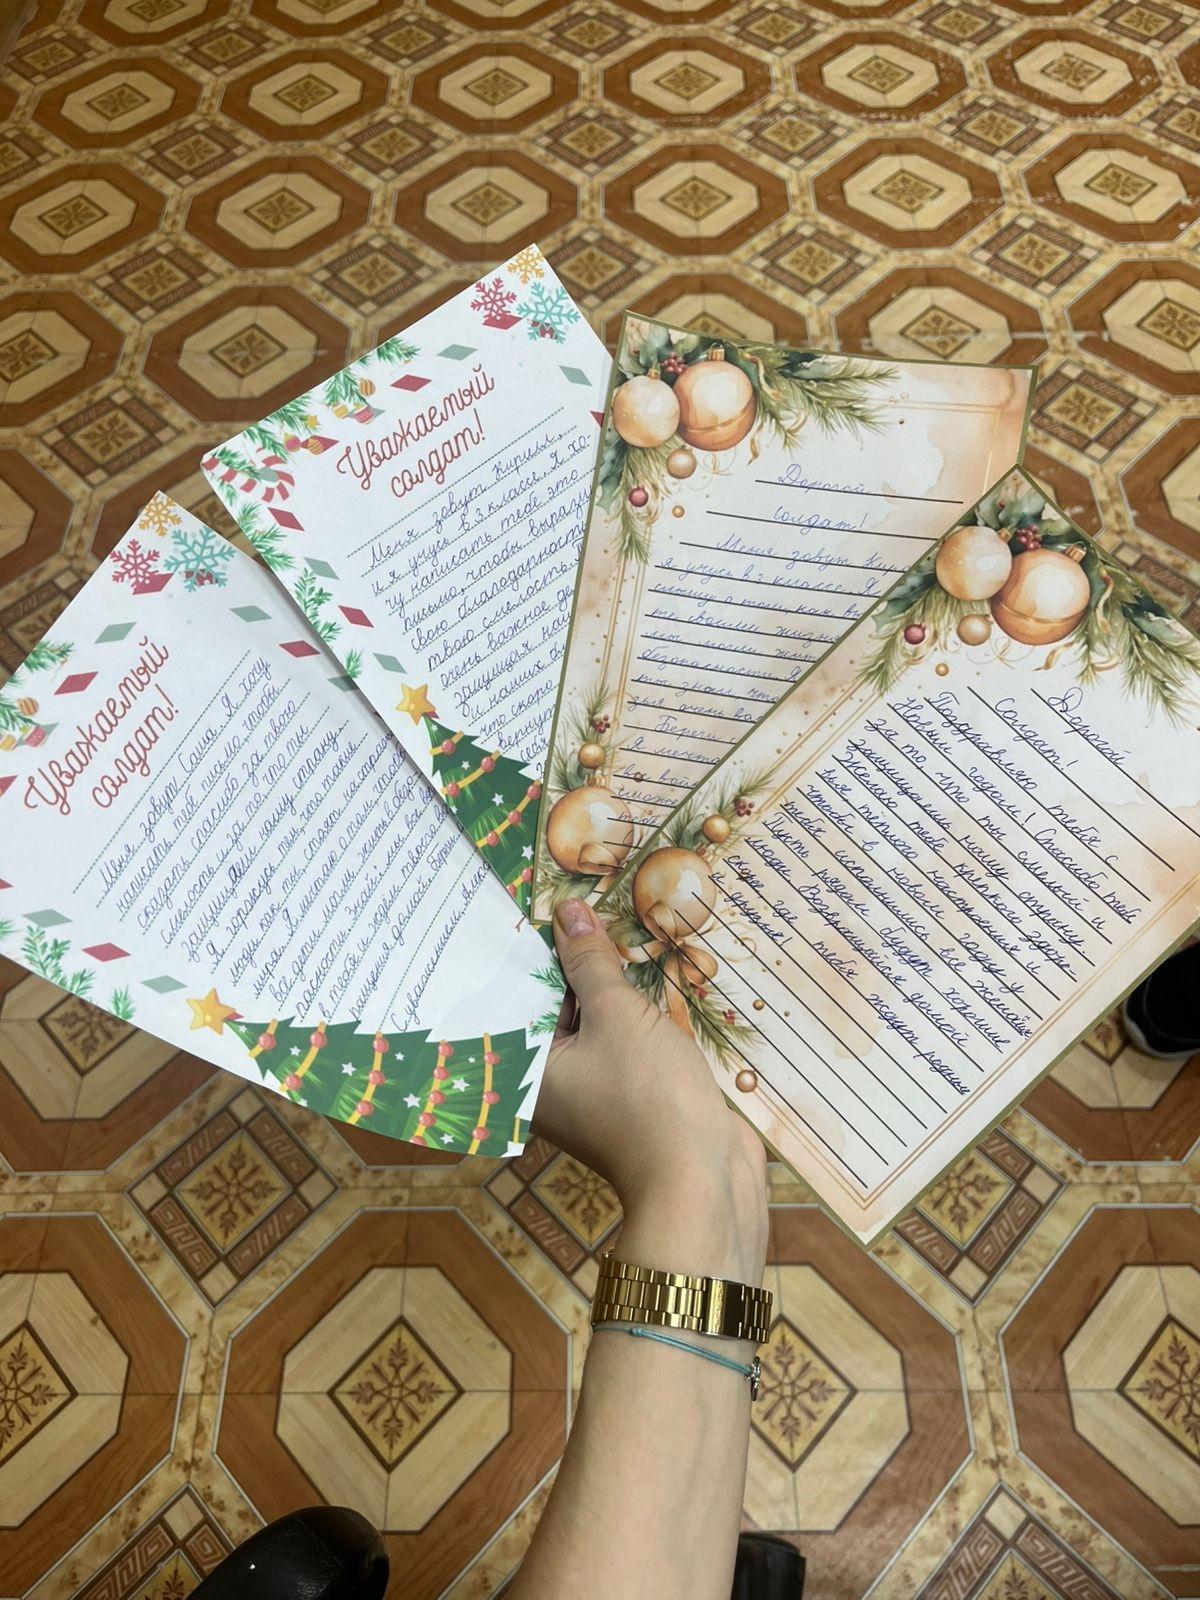 Уважаемый
солдат!
Меня зовут Саша. Я хочу
написать тебе письмо, чтобы
сказать спасибо за твою
смелость и за то, что ты
защищаешь нашу страну.
Я горжусь тем, что такие
люди как ты, стоят на страже
мира. Я мечтаю о том, чтобы
все дети могли жить в безо-
пасности. Знай: мы все верим
в тебя и ждём твоего воз-
вращения домой. Береги
С уважением,
Уважаемый
солдат!
Меня зовут Кирилл,
и я учусь в 3 классе. Я хо-
чу написать тебе это
письмо, чтобы выразить
свою благодарность
твою смелость.
очень важное де
защищая наш
и наших бл
что скоро
вернут
себя
Дорогой
солдат!
Меня зовут Кира
я учусь в 3 классе. Я
слышу о том, как вы
те своими жизня
ли могли жит
безопасности. Я
ты знал, что
зья очень ва
Береги
Я мечта
все вой
сможе
тебя
Дорогой
Солдат!
Поздравляю тебя с
Новым годом! Спасибо тебе
за то, что ты смелый и
защищаешь нашу страну.
Желаю тебе крепкого здоро-
вья, тёплого настроения и
чтобы в новом году у
тебя исполнились все желания.
Пусть рядом будут хорошие
люди. Возвращайся домой
скорее, где тебя ждут родные
и друзья!